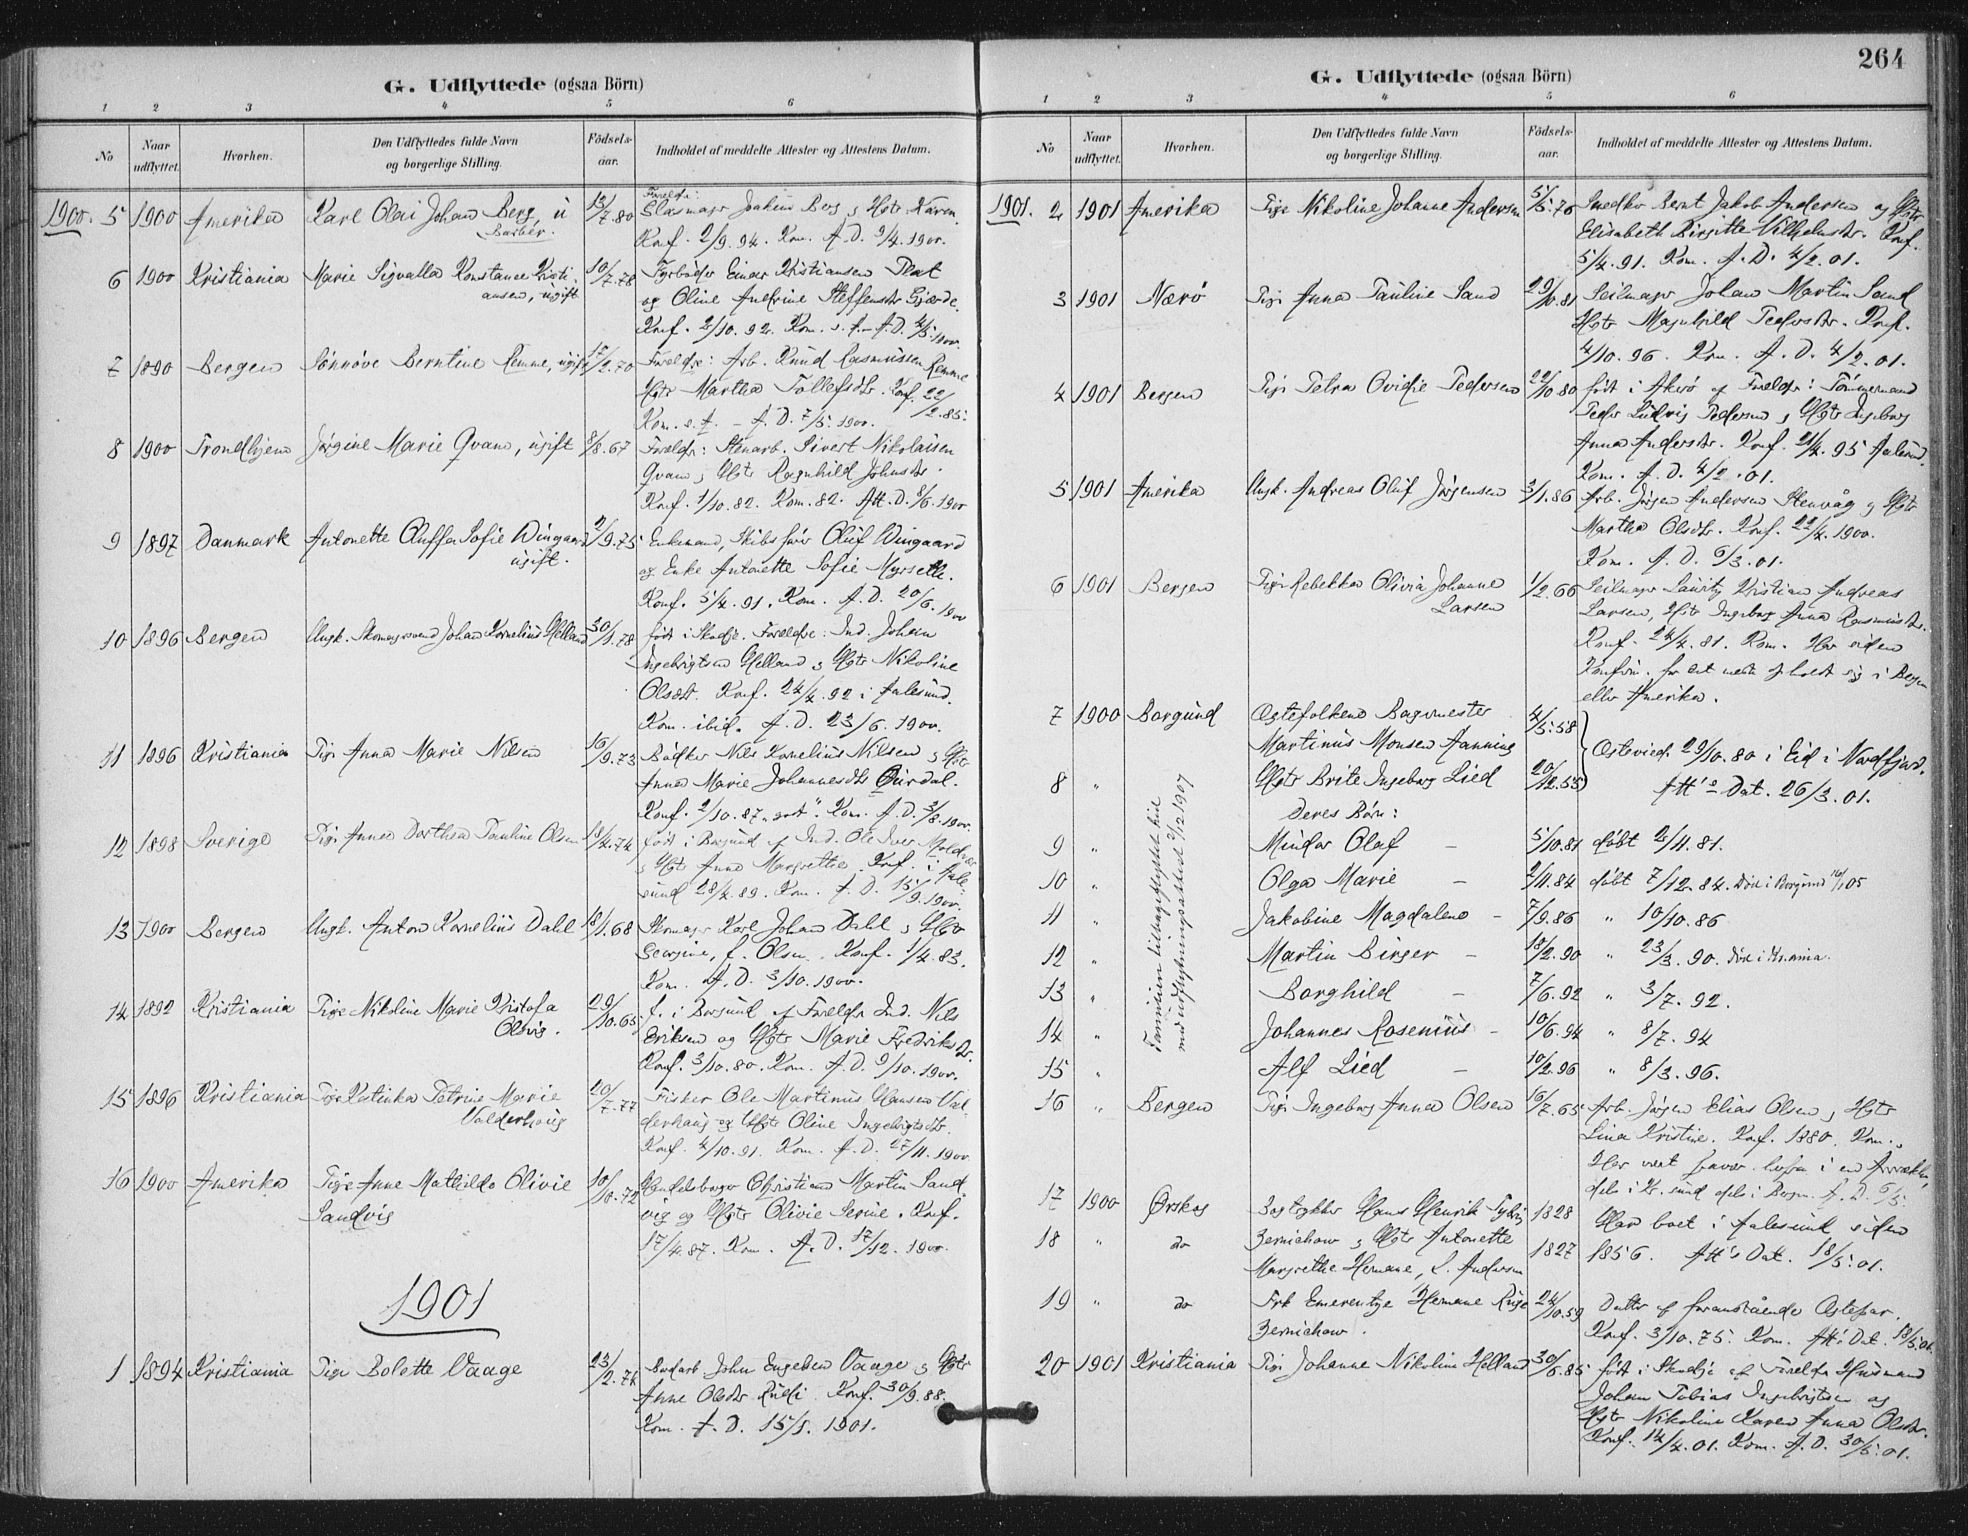 G. Udflyttede (ogsaa Börn)
1 2 3 4 5 6
No
Naar udflyttet.
Hvorhen.
Den Udflyttedes fulde Navn og borgerlige Stilling.
Födsels-aar.
Indholdet af meddelte Attester og Attestens Datum.
1900. 5 1900 Amerika Karl Olai Johan Berg, u 13/7.80 Forældr: Glasmagr Joakim Berg og Hstr Karen
Barber. Konf. 2/9.94. Kom. A.D. 9/4.1900.
6 1900 Kristiania Marie Sigvalla Konstance Kristi- 10/7.78 Fyrbøder Einar Kristiansen
ansen, ugift og Oline Andrine Steffensdtr Gjærde.
Konf. 2/10.92. Kom. s.f. - A.D. 4/5.1900.
7 1890 Bergen Sønnøve Berntine Remme, ugift 17/2.70 Forældre: Arb. Knud Rasmussen Remme
Hstr Martha Tollefsdtr. Konf. 22/2.85.
Kom. s.f. - A.D. 7/5.1900.
8 1900 Trondhjem Jørgine Marie Qvam, ugift 8/8.67 Forældr: Stenarb. Sivert Nikolaisen
Qvam, Hstr Ragnhild Johnsdtr.
Konf. 1/10.82. Kom. 82. Att.D. 8/6.1900
9 1897 Danmark Antonette Oluffa Sofie Wingaard 2/9.75 Enkemand, Skibsfør Oluf Wingaard
ugift. og Enke Antonette Sofie Myrseth.
Konf. 5/4.91. Kom. A.D. 20/6.1900
10 1896 Bergen Ungk. Skomagersvend Johan Kornelius Helland 30/1.78 født i Skodje. Forældre: Ind. Johan
Ingebrigtsen Helland og Hstr Nikoline
Olsdtr. Konf. 24/4.92 i Aalesund.
Kom. ibid. A.D. 23/6.1900.
11 1896 Kristiania Pige Anna Marie Nilsen 16/9.73 Bødker Nils Kornelius Nilsen og Hstr
Anna Marie Johannesdtr
Konf. 2/10.87 "godt". Kom. A.D. 3/8.1900.
12 1898 Sverige Pige Annea Dorthea Pauline Olsen 13/4.74 født i Borgund af Ind. Ole Iver Moldvær
og Hstr Anna Margrethe. Konf. i Aale-
sund 28/4.89. Kom. A.D. 15/9.1900.
13 1900 Bergen Ungk. Anton Kornelius Dahl 18/1.68 Skomagr Karl Johan Dahl og Hstr
Georgine, f. Olsen. Konf. 1/4.83.
Kom. A.D. 3/10.1900.
14 1892 Kristiania Pige Nikoline Marie Kristofa 29/10.65 f. i Borgund af Forældr Ind. Nils
Olsvig. Eriksen og Hstr Marie Fredriksdtr.
Konf. 3/10.80. Kom. A.D. 9/10.1900.
15 1896 Kristiania Pige Katinka Petrine Marie 20/7.77 Fisker Ole Martinus Hansen Val-
Valderhoug derhaug og Hstr Oline Ingebrigtsdtr.
Konf. 4/10.91. Kom. A.D. 27/11.1900
16 1900 Amerika Pige Anne Mathilde Olivie 10/10.72 Handelsborger Christian Martin Sand-
Sandvig vig og Hstr Olivie Serine. Konf.
17/4.87. Kom. A.D. 17/12.1900.
1901
1 1894 Kristiania Pige Bolette Vaage 23/2.74 John Engebre Vaage og Hstr
Anne Olsdtr Konf. 30/9.88.
Kom. A.D. 15/1.1901.
264
G. Udflyttede (ogsaa Börn)
1 2 3 4 5 6
No
Naar udflyttet.
Hvorhen.
Den Udflyttedes fulde Navn og borgerlige Stilling.
Födsels-aar.
Indholdet af meddelte Attester og Attestens Datum.
1901. 2 1901 Amerika Pige Nikoline Johanne Andersen 5/5.76 Snedker Bernt Jakob Andersen og Hstr
Elisabeth Birgitte Vilhelmsdtr. Konf.
5/4.91. Kom. A.D. 4/2.01.
3 1901 Nærö Pige Anna Pauline Sand 29/10.81 Seilmagr Johan Martin Sand
Hstr Magnhild Pedersdtr. Konf.
4/10.96. Kom. A.D. 4/2.01.
4 1901 Bergen Pige Petra Ovidie Pedersen 22/10.80 født i Akerø af Forældr: Tømmermand
Peder Ludvig Pedersen og Hstr Ingeborg
Anna Andersdtr. Konf. 21/4.95 Aalesund.
Kom. A.D. 4/2.01.
5 1901 Amerika Ungk. Andreas Oluf Jørgensen 3/1.86 Arb. Jørgen Andersen Stenvåg og Hstr
Martha Olsdtr. Konf. 22/4.1900.
Kom. A.D. 6/3.01.
6 1901 Bergen Pige Rebekka Olivia Johanne 1/2.66 Seilmagr Lauritz Kristian Andreas
Larsen Larsen, Hstr Ingeborg Anna Rasmusdtr.
Konf. 24/4.81. Kom. Har siden
Konfirm. for det meste opholdt sig i Bergen
eller Amerika.
7 1900 Borgund Ægtefolkene Bagermester 4/5.58
Martinus Monsen Aanning Ægteviet 29/10.80 i Eid i Nordfjord.
8 " Hstr Brite Ingeborg Lied 20/12.55 Att's Dat. 26/3.01.
Deres Børn:
9 " Mindor Olaf - 5/10.81 døbt 2/11.81.
10 " Olga Marie - 2/11.84 døbt 7/12.84. Død i Borgund 05
11 " Jakobine Magdalene - 7/9.86 " 10/10.86
12 " Martin Birger - 18/2.90 " 23/3.90. Død i Kr.ania.
13 " Borghild - 7/6.92 " 3/7.92.
14 " Johannes Rosenius - 10/6.94 " 8/7.94
15 " Alf Lied - 10/2.96 " 8/3.96.
Familien tilbageflyttet hid
med udflytningsattest 3/12 1907
16 " Bergen Pige Ingeborg Anna Olsen 16/7.65 Arb. Jørgen Elias Olsen, Hstr
Lina Kristine. Konf. 1880. Kom.
Har været i en Aarrække,
dels i Kr.sund dels i Bergen. A.D. 6/5.
17 1900 Ørskog Hans Henrik 1828 Har boet i Aalesund siden
18 " do Zernichow og Hstr Antonette 1827 1856. Att's Dat. 18/5.01.
Margrethe Hermane, f. Andersen
19 " do Frk Emerentze Hermane 24/10.59 Datter af foranstående Ægtepar.
Zernichow. Konf. 3/10.75. Kom. Att. Dat. 18/5.01.
20 1901 Kristiania Pige Johanne Nikoline Helland 30/6.85 født i Skodje af Forældr Husmand
Johan Tobias Ingebrigtsen og
Hstr Nikoline Karen Anna Olsdtr.
Konf. 14/4.01. Kom. A.D. 30/5.01.